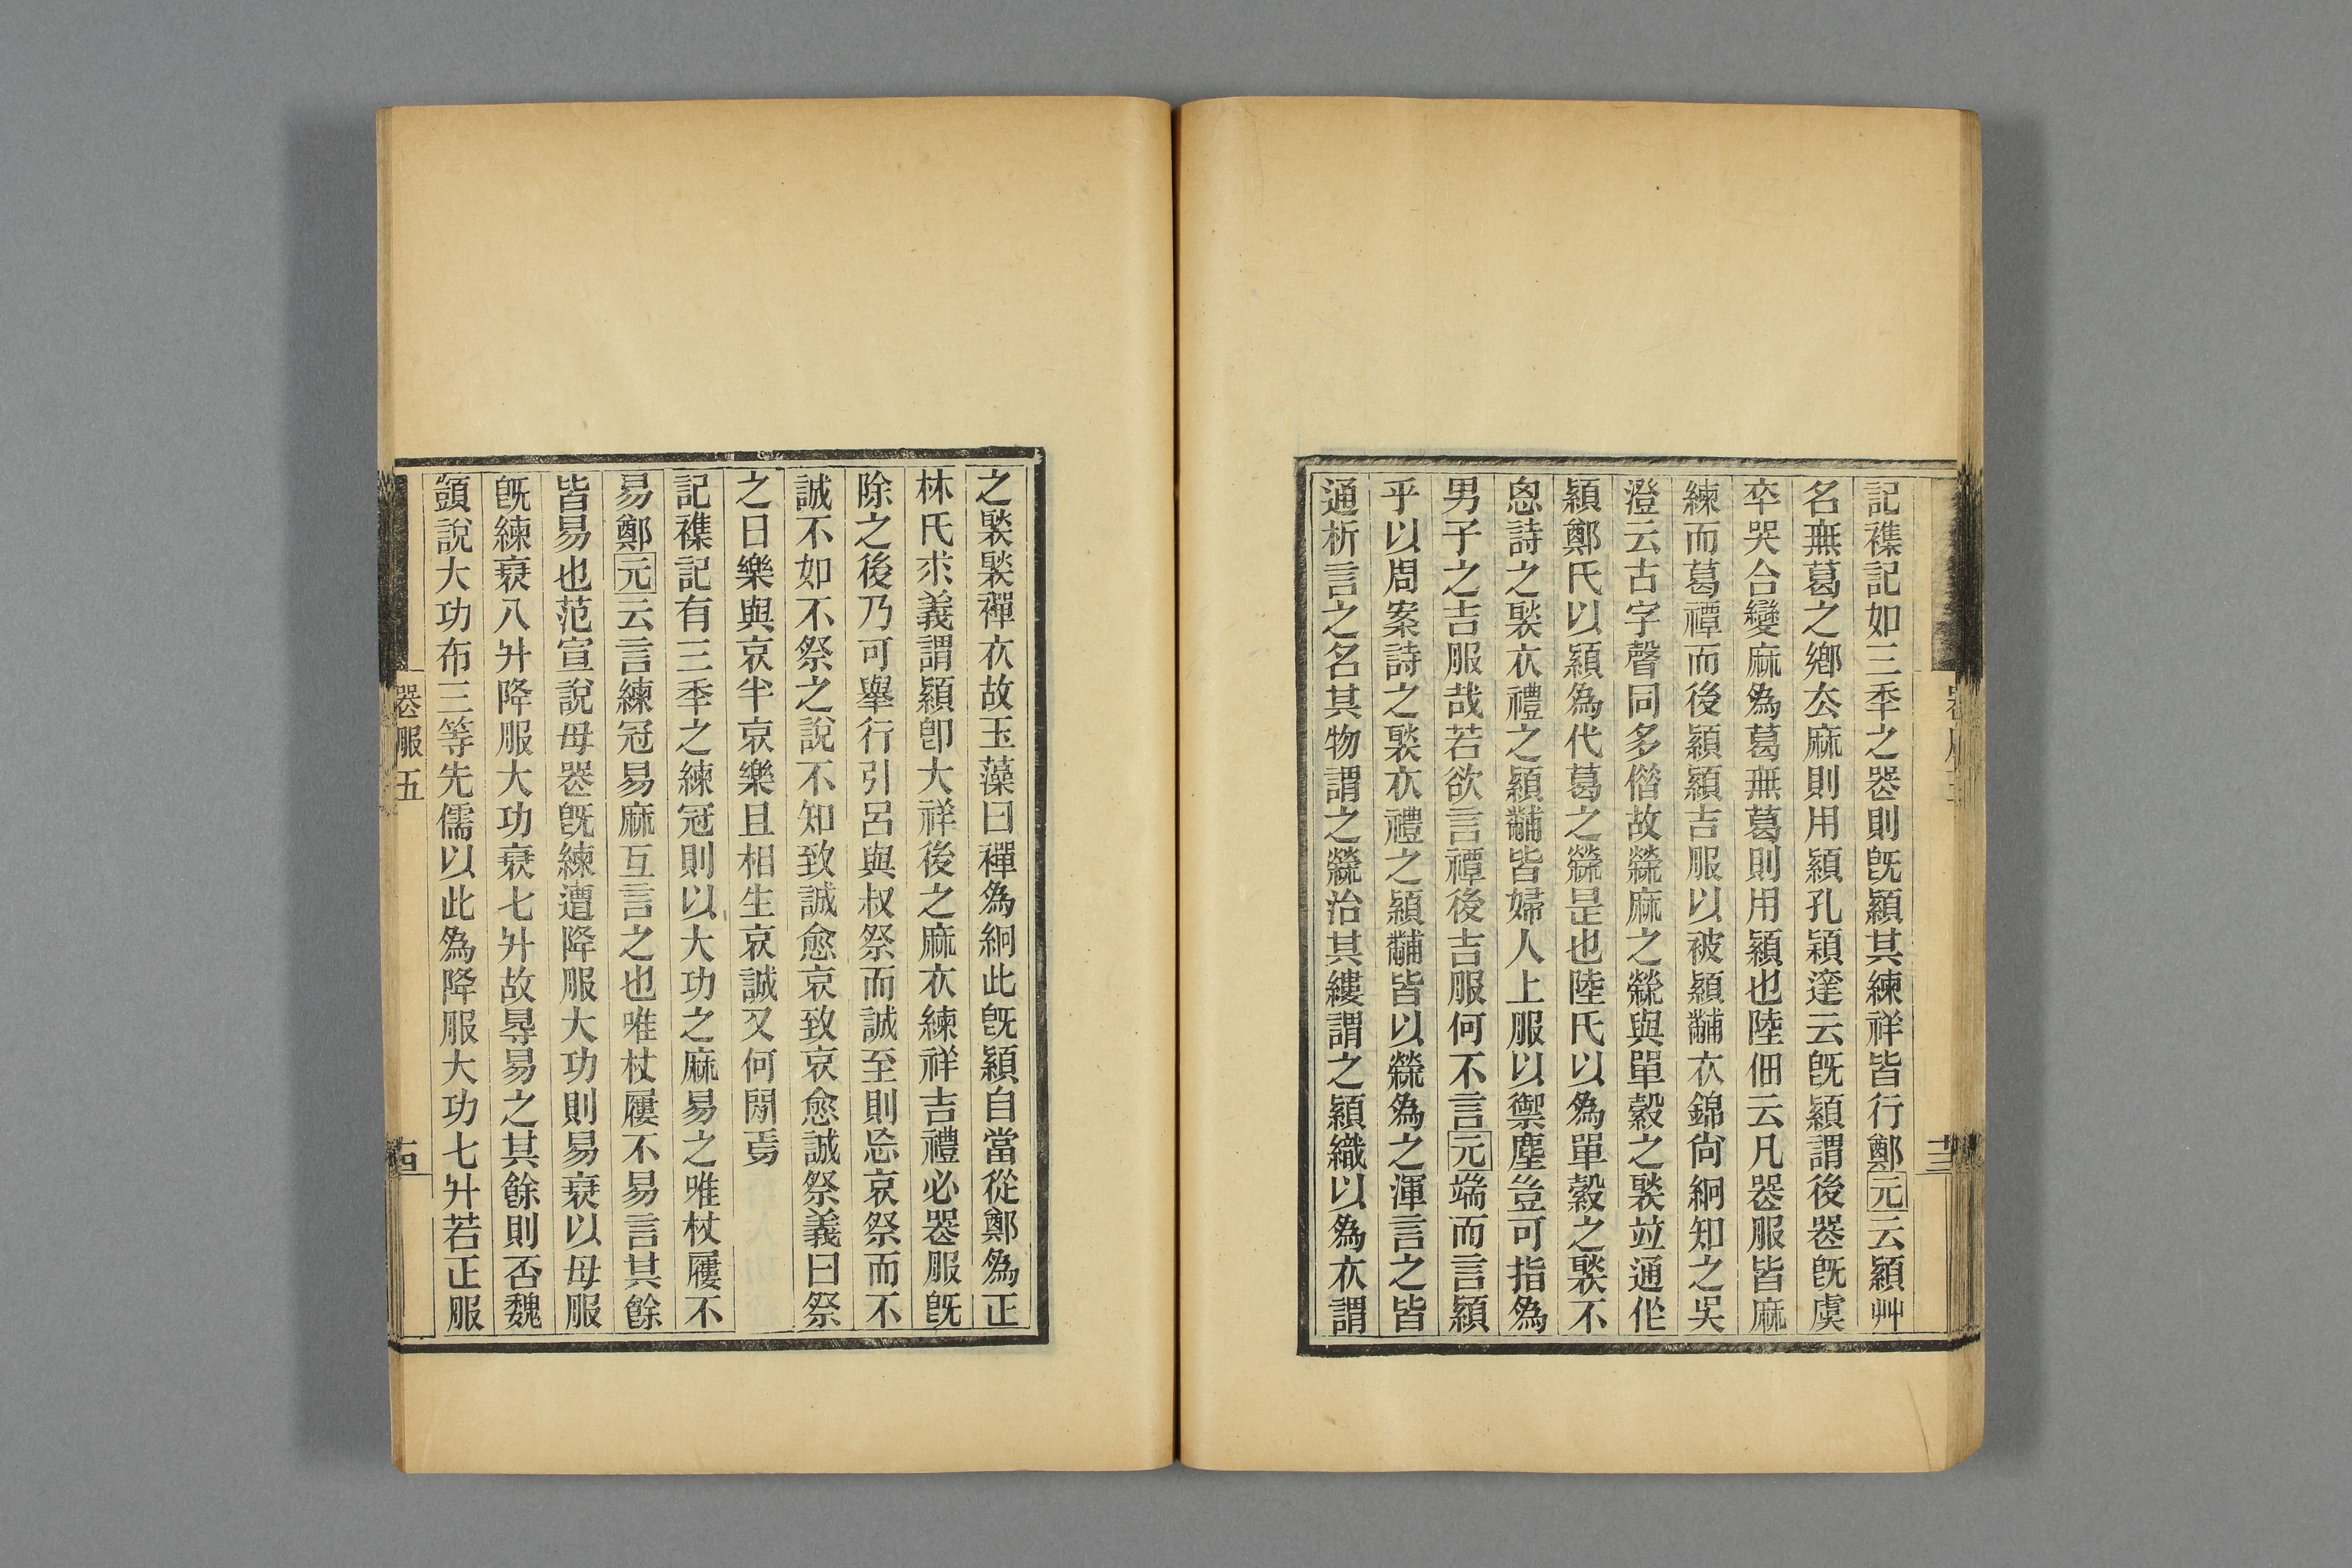 記襍記如三秊之喪則旣潁其練祥皆行鄭元云潁艸
名無葛之鄉去麻則用潁孔穎達云旣潁謂後喪旣虞
卒哭合變麻為葛無葛則用潁也陸佃云凡喪服皆麻
練而葛禫而後潁潁吉服以被潁黼衣錦尙絅知之吳
澄云古字聲同多偕故檾麻之檾與單縠之褧竝通作
潁鄭氏以潁為代葛之檾昰也陸氏以為單縠之褧不
悤詩之褧衣禮之潁黼皆婦人上服以禦塵豈可指為
男子之吉服哉若欲言禫後吉服何不言元端而言潁
乎以周案詩之褧衣禮之潁黼皆以檾為之渾言之皆
通析言之名其物謂之檾治其縷謂之潁織以為衣謂
之褧褧襌衣故玉藻曰襌為絅此旣潁自當從鄭為正
林氏求義謂潁卽大祥後之麻衣練祥吉禮必喪服旣
除之後乃可舉行引呂與叔祭而誠至則忘哀祭而不
誠不如不祭之說不知致誠愈哀致哀愈誠祭義曰祭
之日樂與哀半哀樂且相生哀誠又何閒焉
記襍記有三秊之練冠則以大功之麻易之唯杖屨不
易鄭元云言練冠易麻互言之也唯杖屨不易言其餘
皆易也范宣說母喪旣練遭降服大功則易衰以母服
旣練衰八升降服大功衰七升故㝵易之其餘則否魏
顗說大功布三等先儒以此為降服大功七升若正服
喪服五
十四